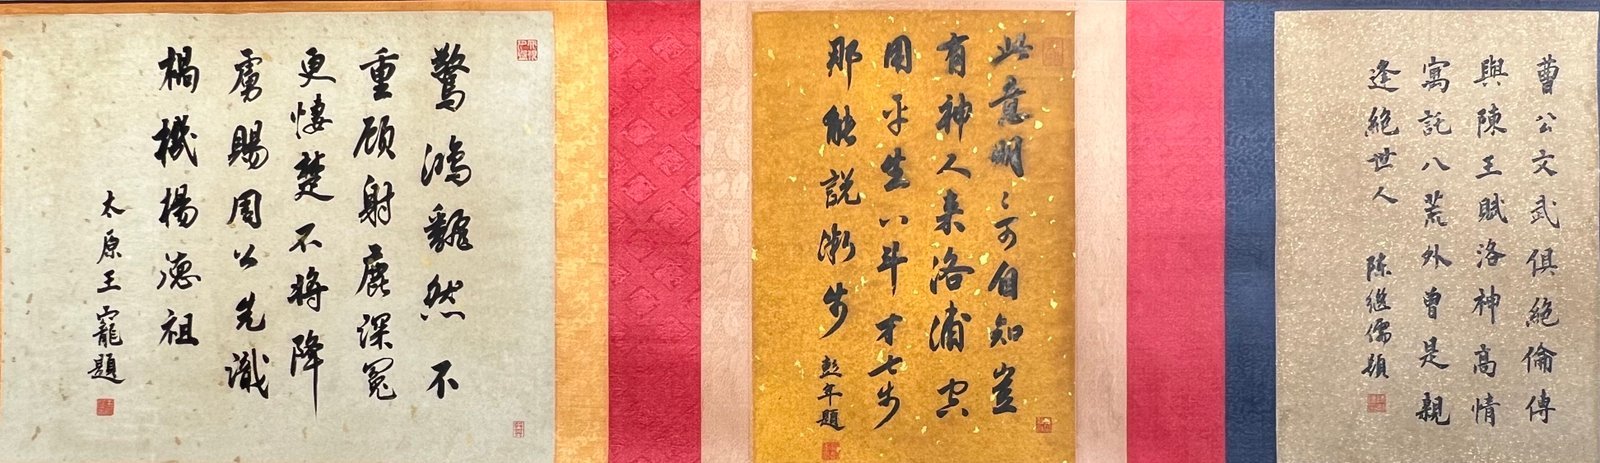 曹公文武俱絶倫傳
與陳王賦洛神高情
寓託八荒外曾是親
逢絶世人
陈繼儒題
此意明〻可自知豈
有神人来洛浦空
用平生八斗才七步
那能説漸步
彭年題
驚鴻翩然不
重顾射鹿深冤
更悽楚不将降
虜賜周公先識
禍機楊德祖
太原王寵題